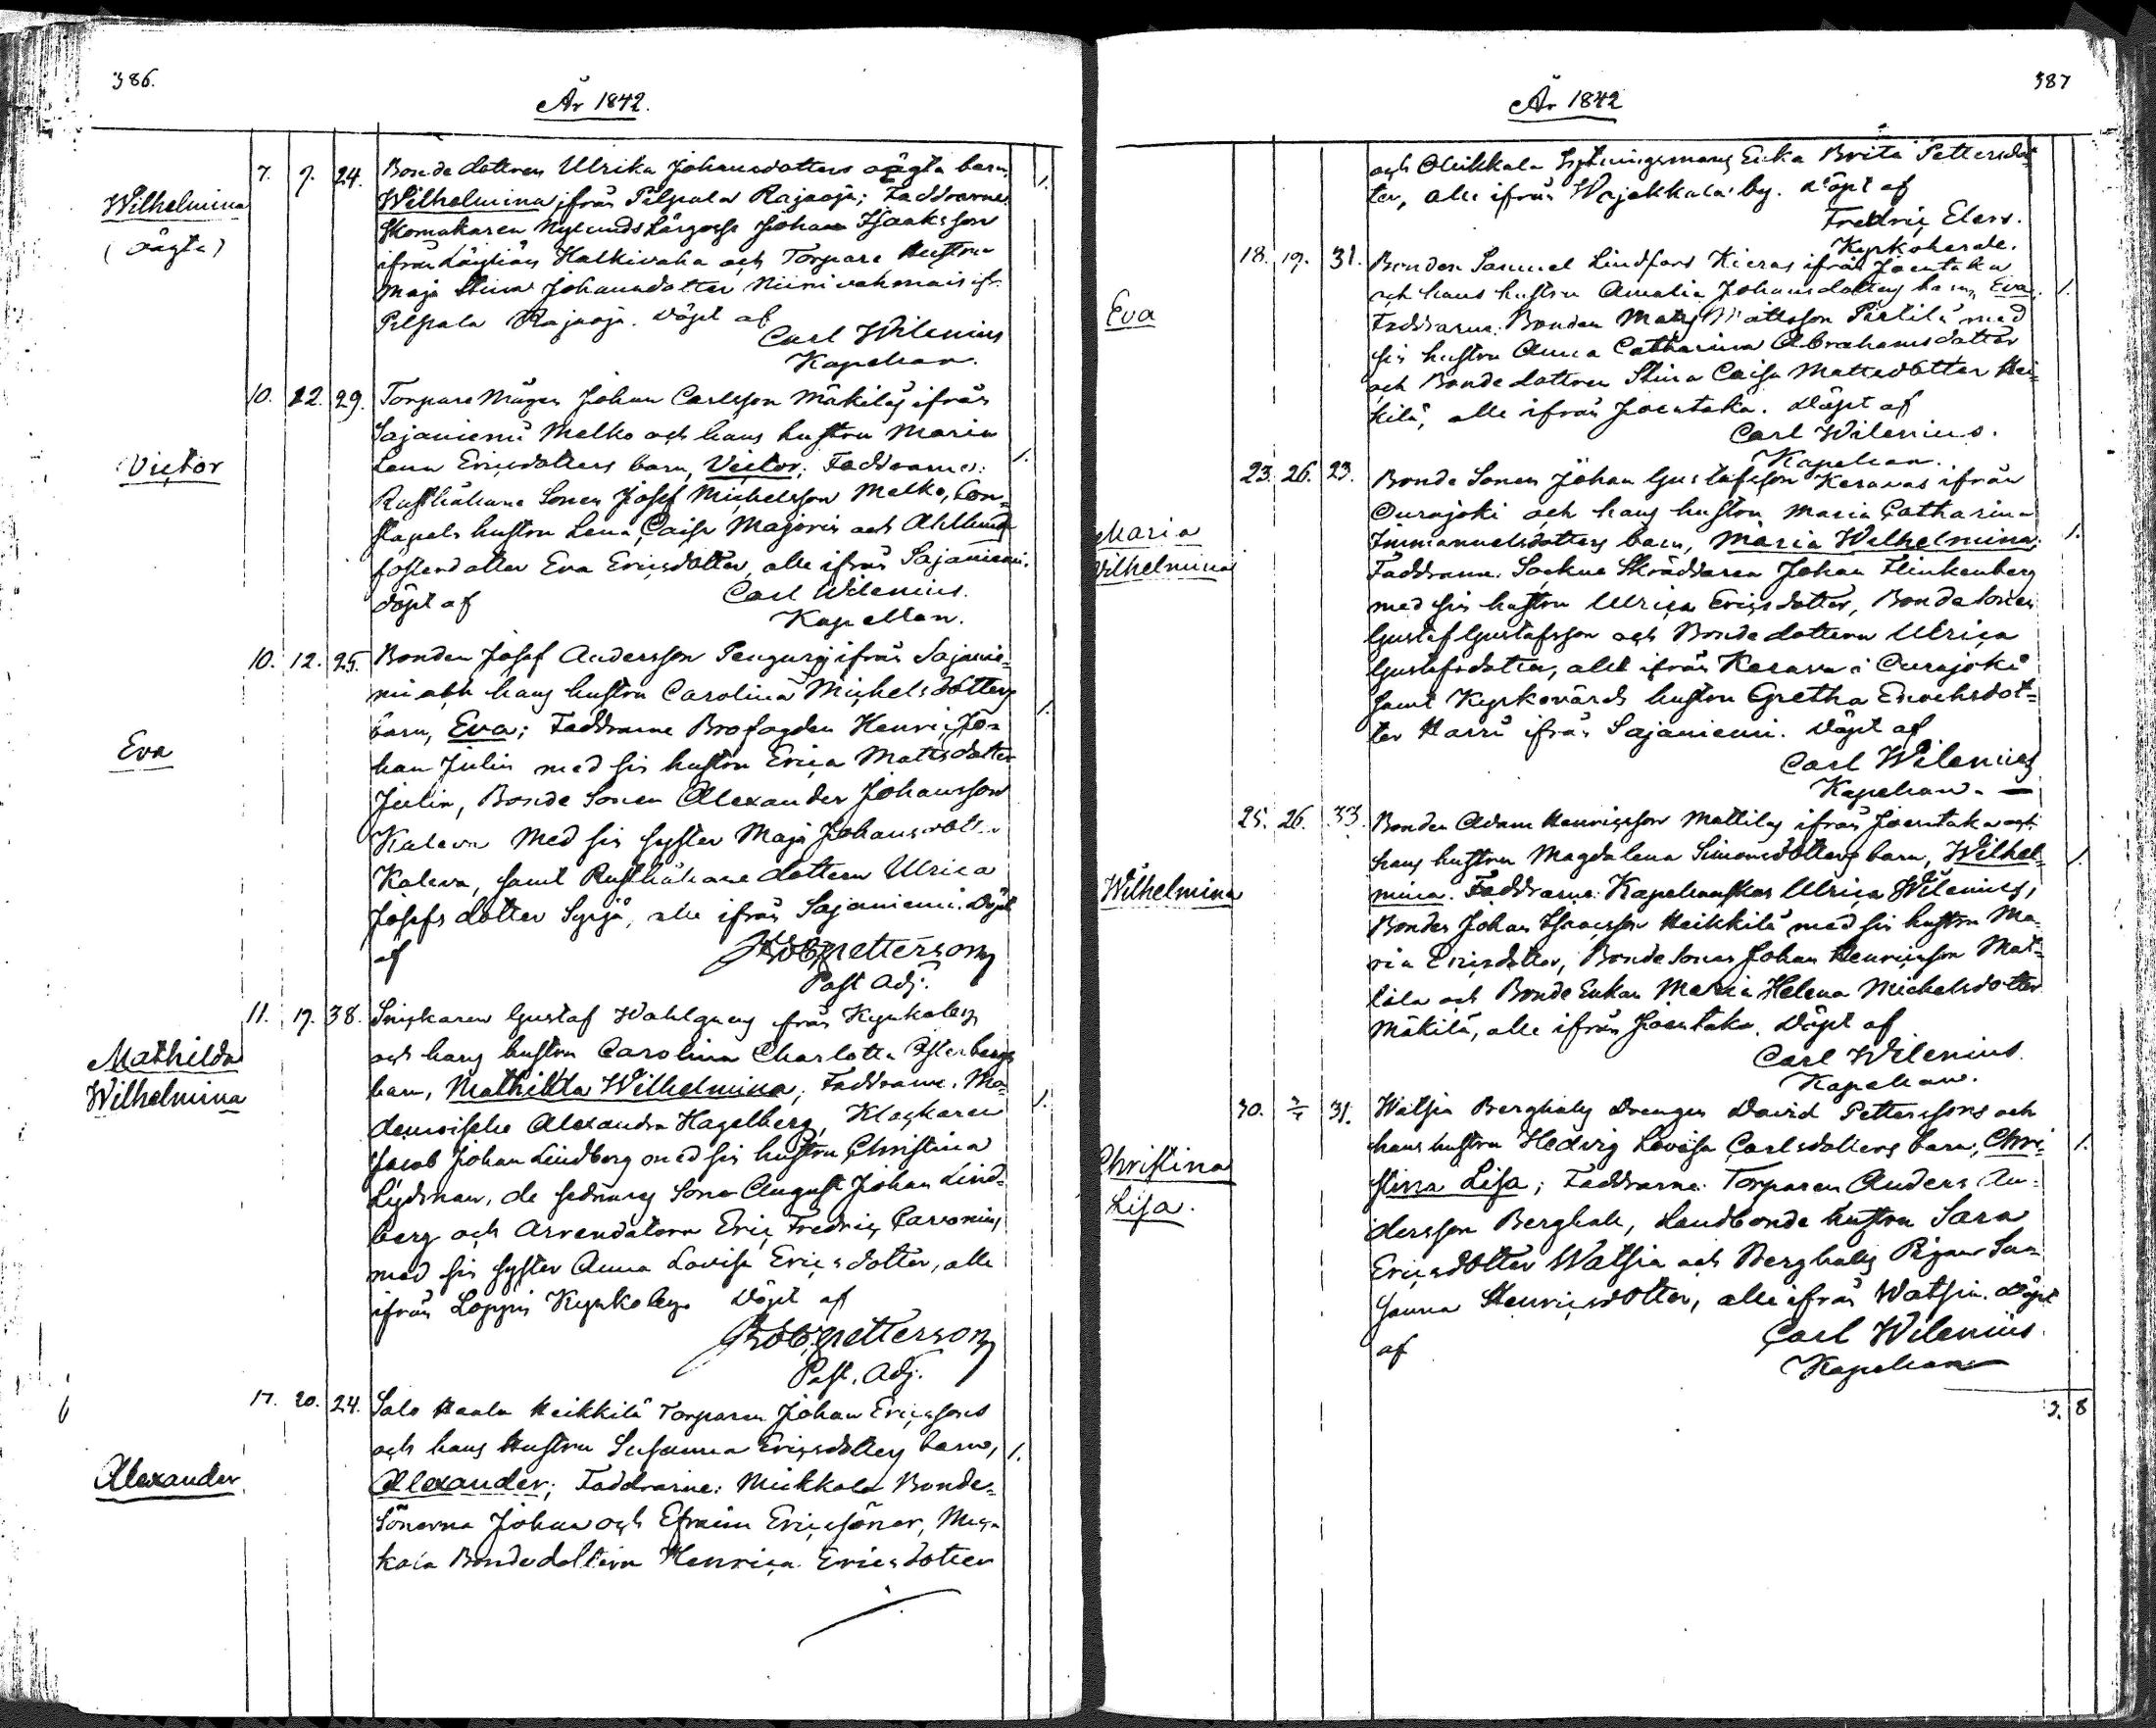 386.
År 1842.
Wilhelmina
(oägta)
7. 9. 24. Bonde dottren Ulrika Johansdotters oägta barn,
Wilhelmina ifrån Pilpala Rajaoja; Faddrarne
Skomakaren Nylunds Lärgosse Johan Isaaksson
ifrån Läyliäis Kalkivaha och Torpare Hustrun
Maja Stina Johansdotter ifr.
Pilpala Rajaoja. Döpt af
Carl Wilenius
Kapellan.
Victor
10. 12. 29. Torpare Mågen Johan Carlsson Mäkiläs ifrån
Sajaniemi Melko och hans hustru Maria
Lena Ericsdotters barn, Victor; Faddrarne:
Rusthållare Sonen Josef Michelsson Melko, Con-
stapels hustru Lena Caisa Majorin och Ahllunds
fosterdotter Eva Ericsdotter, alle ifrån Sajaniemi.
döpt af
Carl Wilenius.
Kapellan.
Eva
10. 12. 25. Bonden Josef Andersson Pengurs ifrån Sajanie-
mi och hans hustru Carolina Michelsdotters
barn, Eva; Faddrarne Brofogden Henric Jo-
han Julin med sin hustru Erica Mattsdotter
Julin, Bonde Sonen Alexander Johansson
Kaleva med sin syster Maja Johansdotter
Kaleva, samt Rusthållare dottern Ulrica
Josefsdotter Syrjä, alle ifrån Sajaniemi. Döpt
af
Petterson
Past. Adj.
Mathilda
Wilhelmina
11. 17. 38. Snickaren Gustaf Wahlgrens ifrån Kyrkoby
och hans hustru Carolina Charlotta Österbergs
barn, Mathilda Wilhelmina; Faddrarne: Ma-
demoiselle Alexandra Hagelberg, Klockaren
Jacob Johan Lindberg med sin hustru Christina
Lydman, de sednares Son August Johan Lind-
berg och Arrendatorn Eric Fredric Carvonius
med sin syster Anna Lovisa Ericsdotter, alle
ifrån Loppis Kyrkoby. Döpt af
Petterson
Past. Adj.
Alexander
17. 20. 24. Salo Heikkilä Torparen Johan Ericssons
och hans Hustru Susanna Ericsdotters barn,
Alexander; Faddrarne: Mickkola Bonde-
Sönerna Johan och Efraim Ericssöner, Mick-
kola Bondedottern Henrica Ericsdotter
387
År 1842
och Ollikkala Enka Brita Pettersdot-
ter, alle ifrån Wojakkala by. Döpt af
Fredric Elers.
Kyrkoherde.
Eva
18. 19. 31. Bonden Samuel Lindfors Kieras ifrån Joentaka
och hans hustru Amalia Johansdotters barn, Eva.
Faddrarne. Bonden Matts Mattsson Perttilä med
sin hustru Anna Catharina Abrahamsdotter
och Bonde dottren Stina Caisa Mattsdotter Hei-
kilä, alle ifrån Joentaka. Döpt af
Carl Wilenius.
Kapellan.
Maria
Wilhelmina
23. 26. 23. Bonde Sonen Johan Gustafsson Keravas ifrån
Ourajoki och hans hustru Maria Catharina
Immanuelsdotters barn, Maria Wilhelmina.
Faddrarne. Sockne Skräddaren Johan Flinkenberg
med sin hustru Ulrica Ericsdotter, Bonde Sonen
Gustaf Gustafsson och Bonde dottern Ulrica
Gustafsdotter, alle ifrån Kerava i Ourajoki
samt Kyrkovärds hustru Gretha Enochsdot-
ter Harri ifrån Sajaniemi. Döpt af
Carl Wilenius
Kapellan.
Wilhelmina
25. 26. 33. Bonden Adam Henricsson Mattilas ifrån Joentaka och
hans hustru Magdalena Simonsdotters barn, Wilhel-
mina. Faddrarne: Kapellanskan Ulrica Wilenius,
Bonden Johan Isracsson Heikkilä med sin hustru Ma-
ria Ericsdotter, Bonde Sonen Johan Henricsson Mat-
tila och Bonde Enkan Maria Helena Michelsdotter
Mäkilä, alle ifrån Joentaka. Döpt af
Carl Wilenius.
Kapellan.
Christina
Lisa.
30. 31. Watsia Berghälls Drengen David Petterssons och
hans hustru Hedvig Lovisa Carlsdotters barn, Chri-
stina Lisa; Faddrarne: Torparen Anders An-
dersson Berghäll, Landbonde hustru Sara
Ericsdotter Watsia och Berghälls Pigan Su-
sanna Henricsdotter, alle ifrån Watsia. Döpt
af
Carl Wilenius.
Kapellan
3. 8